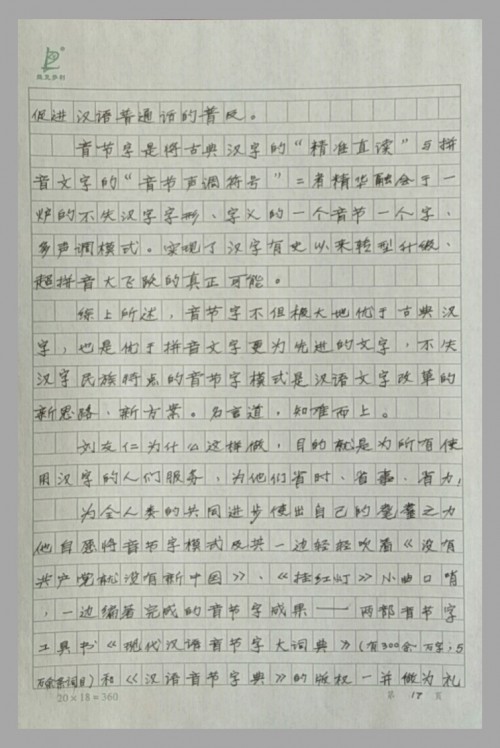 促进汉语普通话的普及。
音节字是将古典汉字的“精准直读”与拼
音文字的“音节声调符号”二者精华融合于一
炉的不失汉字字形、字义的一个音节一个字、
多声调模式。实现了汉字有史以来转型升级、
超拼音大飞跃的真正可能。
综上所述，音节字不但极大地优于古典汉
字，也是优于拼音文字更为先进的文字，不失
汉字民族特点的音节字模式是汉语文字改革的
新思路、新方案。名言道，知难而上。
刘友仁为什么这样做，目的就是为所有使
用汉字的人们服务，为他们省时、省事、省力，
为全人类的共同进步使出自己的毫釐之力
他自愿将音节字模式及其一边轻轻吹着《没有
共产党就没有新中国》、《挂红灯》小曲口哨
，一边编著完成的音节字成果——两部音节字
工具书《现代汉语音节字大词典》（有300余万字；5
万余条词目）和《汉语音节字典》的版权一并做为礼
20×18=360
第 17 页